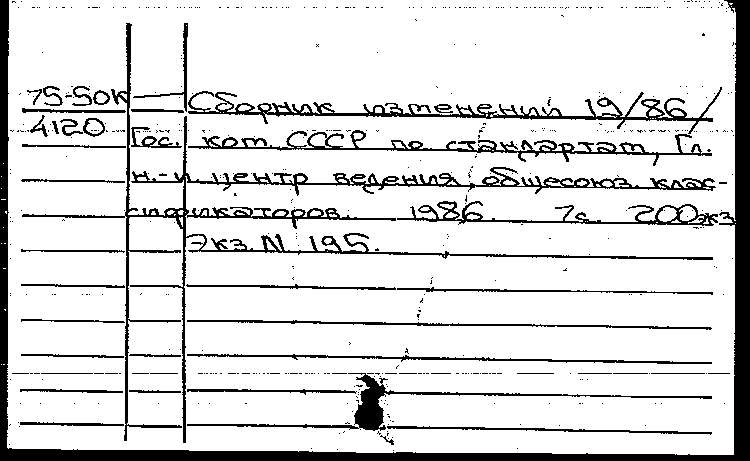 75-50к — Сборник изменений 19/86 /
4120 Гос. ком. СССР по стандартам, Гл.
н.-и. центр ведения общесоюз. клас-
сификаторов. 1986. 7с. 200экз
Экз. N 195.